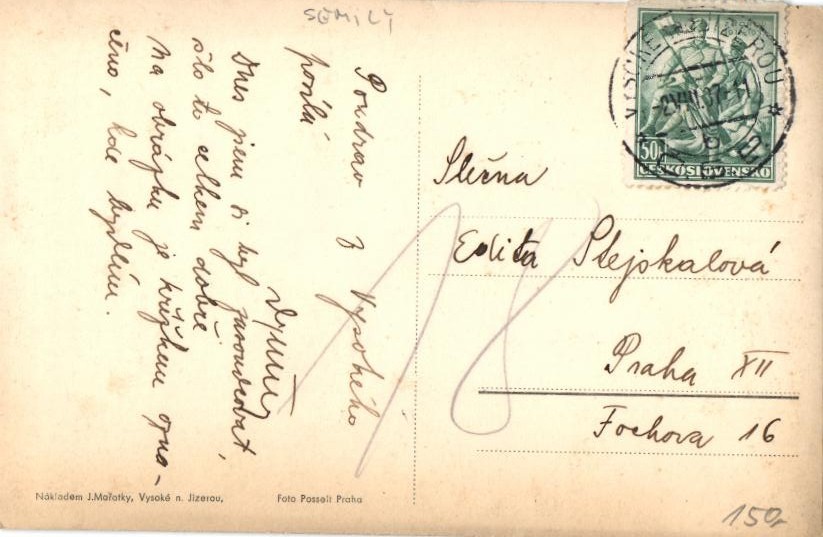 SEMILY
Pozdrav z Vysokého
posílá
Dnes jsem si byl zavodovat,
šlo to celkem dobře
Na obrázku je křížkem ozna-
čeno, kde bydlím.
Slečna
Edita Stejskalová
Praha XII
Fochova 16
VYSOKÉ N. JIZEROU
-2.VIII.37.-
50h
ČESKOSLOVENSKO
18
Nákladem J.Mařatky, Vysoké n. Jizerou,
Foto Posselt Praha
150,-